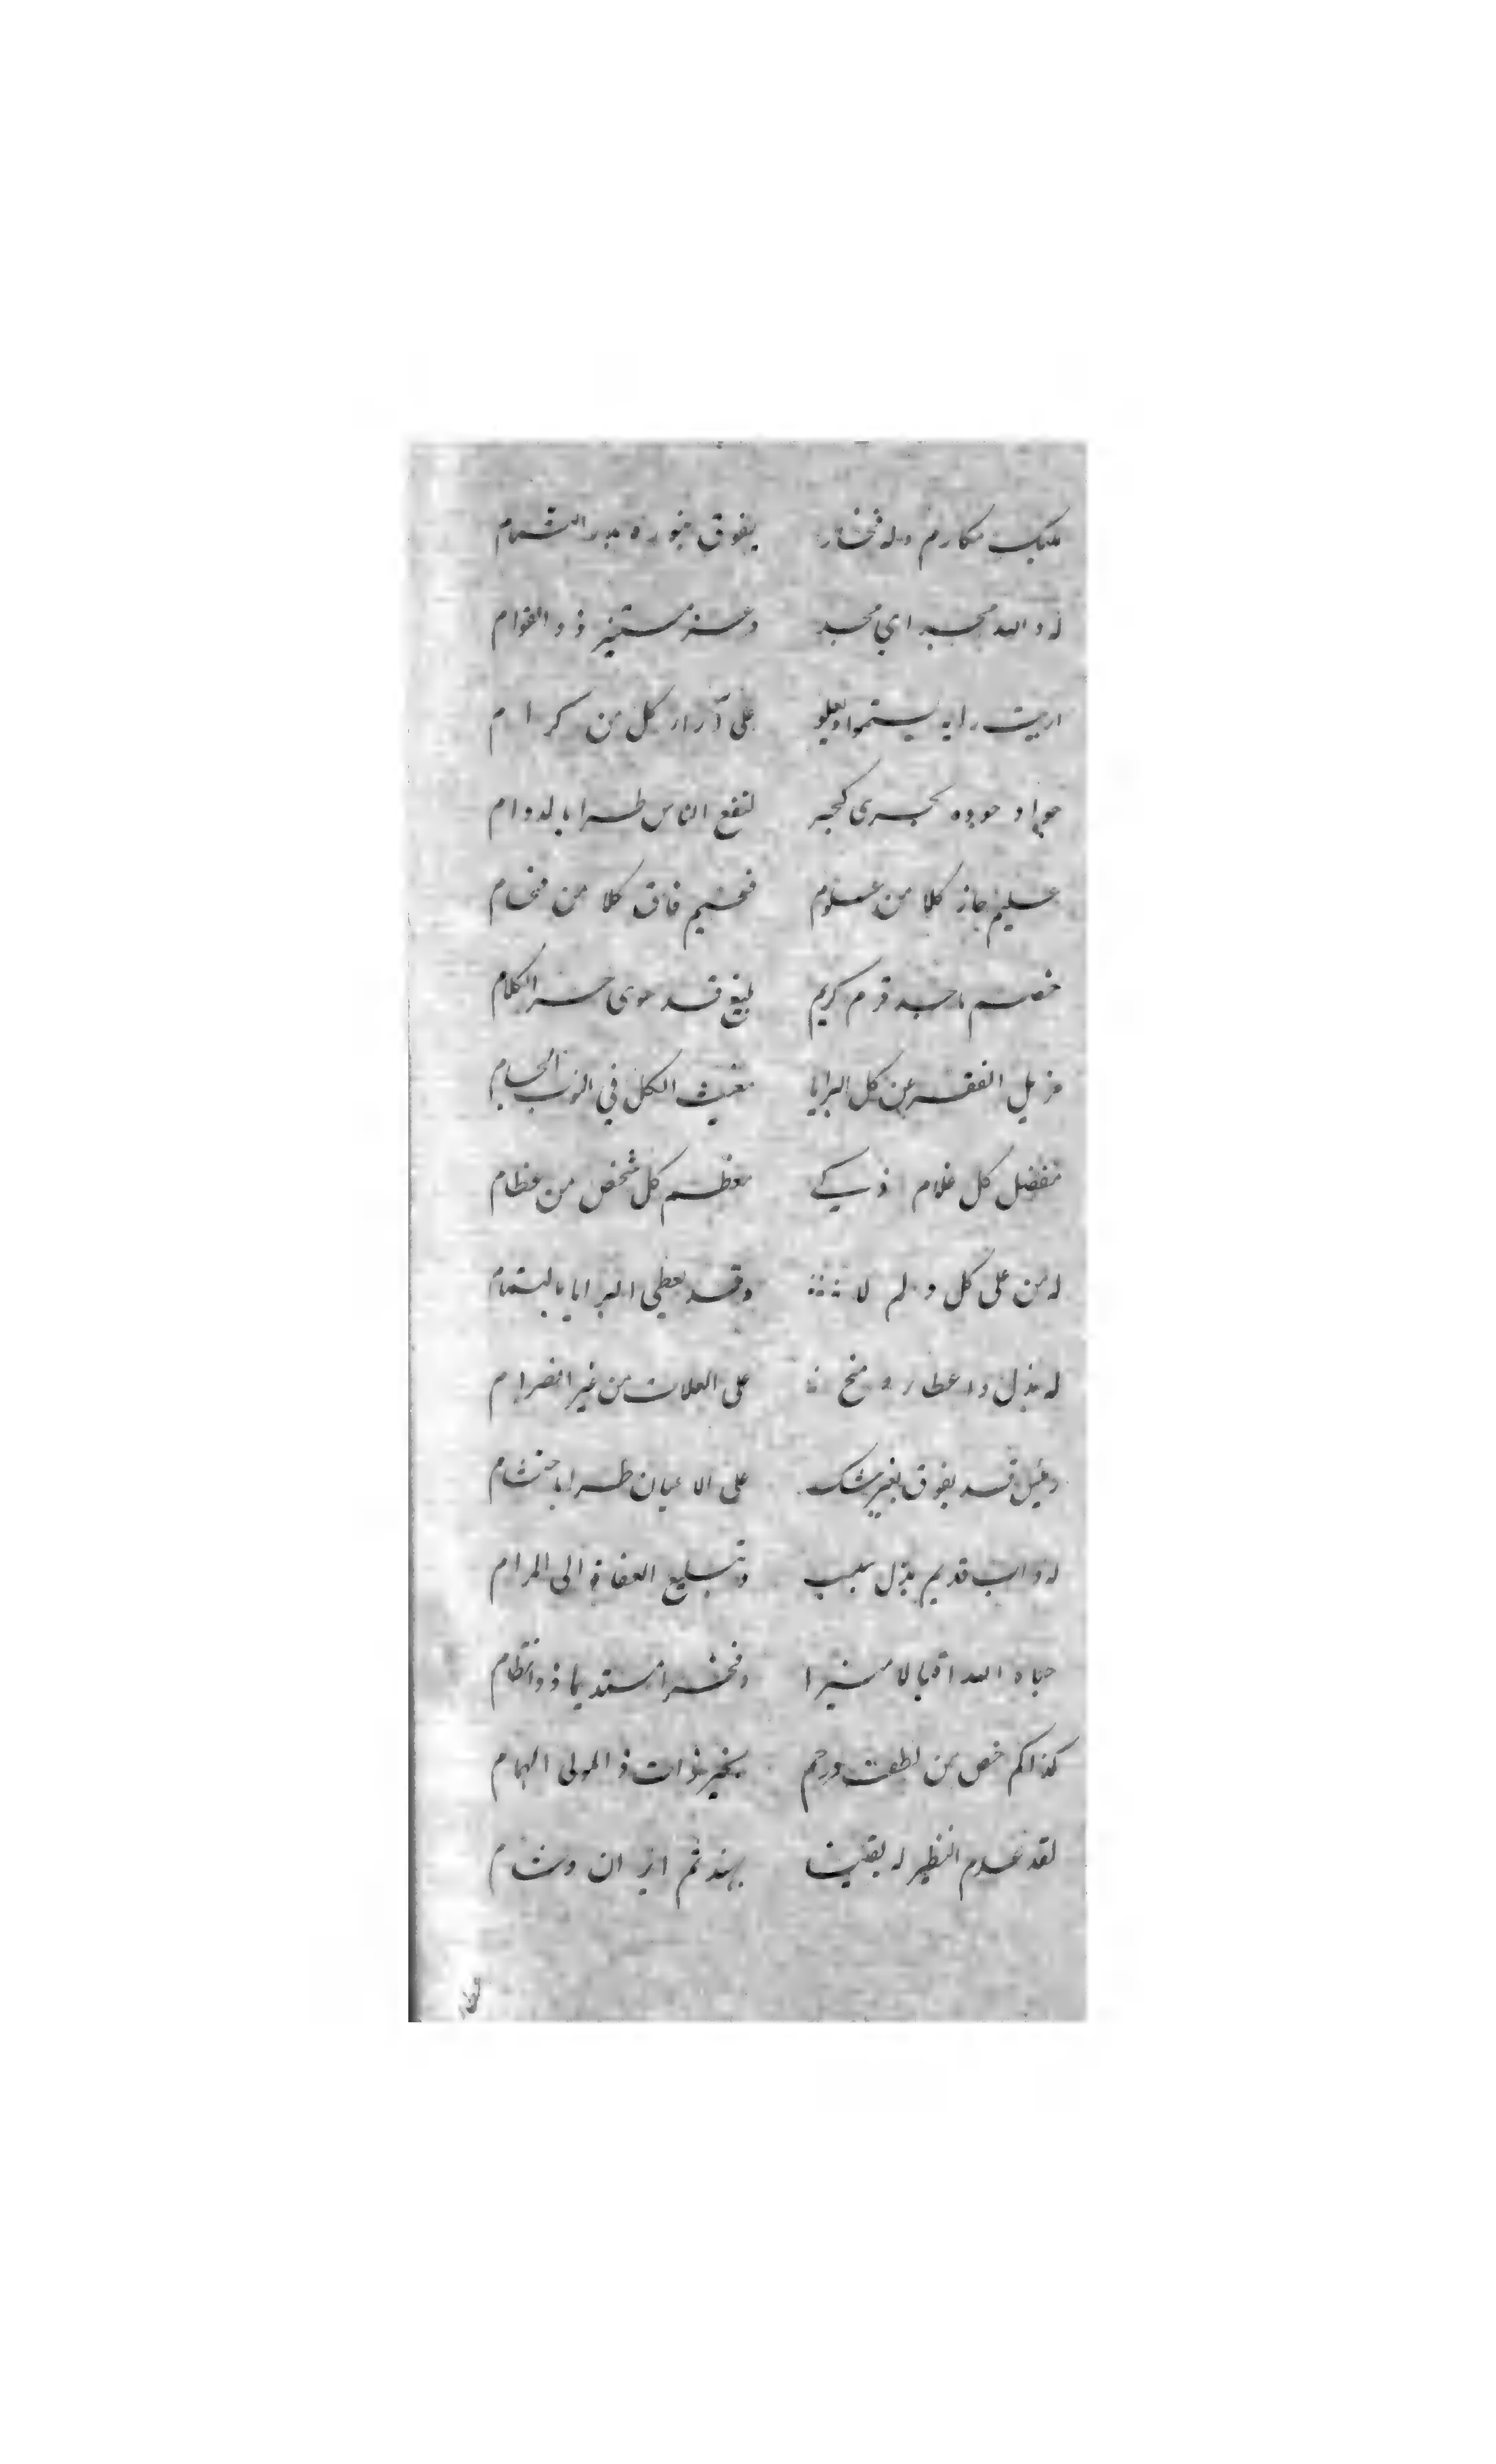 مليك مكارم وله فخار يفوق بنوره بدر التمام
له والله مجد اي مجد وعز مستنير ذو القوام
اريب رايه يسموا ويعلو على آراء كل من كرام
جواد جوده يجرى كبحر لنفع الناس طرا بالدوام
عليم حاز كلا من علوم فخيم فاق كلا من فخام
خضم ماجد قرم كريم بليغ قد حوى حر الكلام
مزيل الفقر عن كل البرايا مغيث الكل في النوب الجسام
مفضل كل علام ذكي معظم كل شخص من عظام
له من على كل ولم لا وقد يعطي البرايا بالتمام
له بذل واعطاء ومنح على العلات من غير انصرام
ونيل قد يفوق بغير شك على الاعيان طرا باحتشام
له داب قديم بذل سيب وتبليغ العفاة الى المرام
حباه الله اقبالا منيرا وفخرا مستديما ذو انتظام
كذاكم خص من لطف ورحم بخير ذات ذ المولى الهمام
لقد عدم النظير له يقينا بهند ثم ايران وشام